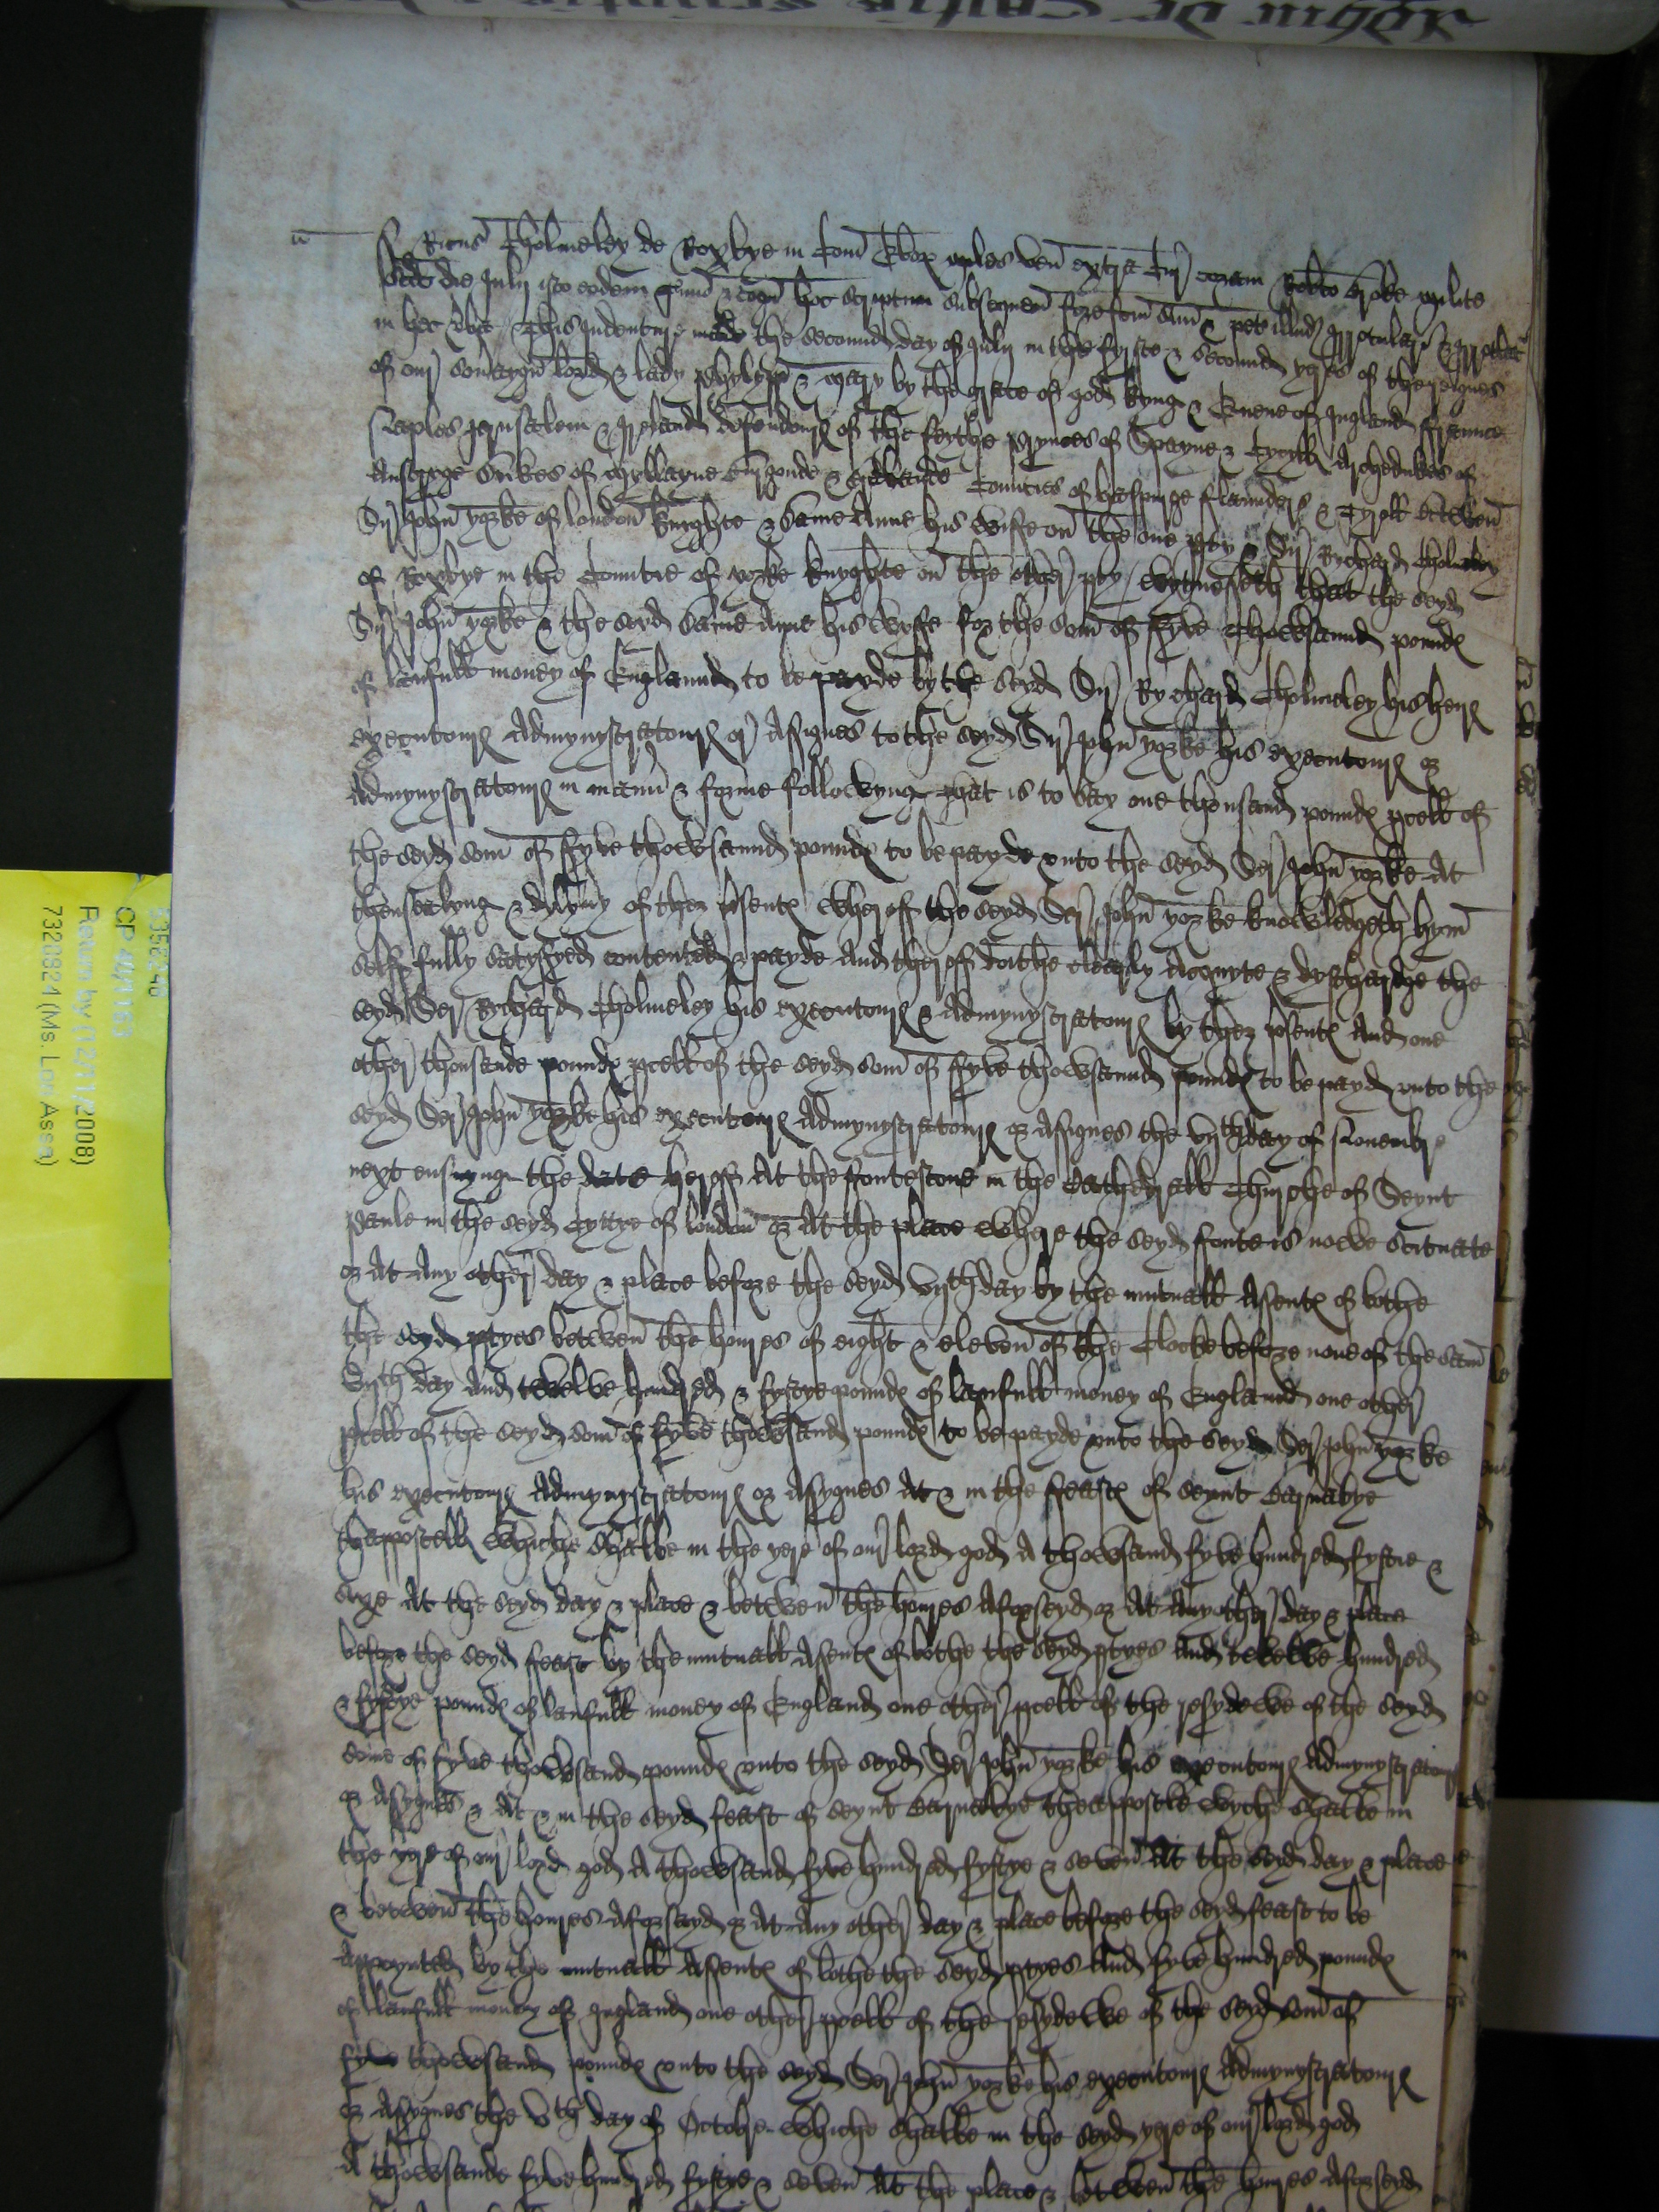 Ricus Cholmeley de Roxbye in Com Ebor miles ven coram Robto Broke milite
die July isto eodem hoc scriptum subsequens fore fcm suum & pet illud irrotulari & irrotulat
in hec verba This Indenture made the seconnd day of July in the fyrste & seconnd yeres of the reignes
of our soueraygn lord & lady Phylypp & Mary by the grace of god kyng & Quene of Ingland Fraunce
Naples Jerusalem & Ireland defendours of the feythe Prynces of Spayne & Cycyll Archedukes of
Austryge Dukes of Myllayne Burgonde & Brabante Counties of haspurge Flaunders & Tyroll betwen
Sir John Yorke of london knyghte & Dame Anne his Wiffe on the one pty & Sir Rychard Cholmeley
of Roxbye in the Countie of Yorke knyghte on the other pty Wytnesseth that the seyd
Sir John Yorke & the seyd Dame Anne his Wyffe for the som of fyve Thowsannd pounds
of laufull money of Englannd to be payde by the seyd Sir Rychard Cholmeley his heirs
executours Admynystratours or Assignes to the seyd Sir John Yorke his executours or
Admynystratours in mann & forme followyng That is to say one thousand pounds pcell of
the seyd som of ffyve thowsannd pounds to be payde vnto the seyd Ser John Yorke At
thensealyng & delyuy of thez psents Wheroff the seyd Ser John Yorke knowledgeth hym
selff fully satysfyed contented & payde And theroff dothe clearly Acquyte & dyscharge the
seyd Ser Rychard Cholmeley his executours & Admynystratours by thez psents And one
other thousande pounds pcell of the seyd som of ffyve thowsannd pounds to be payd vnto the
seyd Ser John Yorke his executours Admynystratours or Assignes the vijth day of Nouembre
next ensuyng the date heroff At the fontestone in the Cathedrall Churche of Seynt
Paule in the seyd Cyttye of london or At the place Where the seyd fonte is nowe scituate
or At Any other day & place before the seyd vijth day by the mutuall Asents of bothe
the seyd ptyes betwen the houres of eight & eleven of the Clocke before none of the sam
vijth day And twelve hundred & fyftye pounds of laufull money of Englannd one other
pcell of the seyd som of fyve thowsannd pounds to be payde vnto the seyd Ser John Yorke
his executours Admynystratours or Assygnes At & in the ffeaste of seynt Barnabye
thappostell Whiche shalbe in the yere of our lord god A thowsand fyve hundred fyftie &
syxe At the seyd day & place & betwen the houres Aforseyd or At Any other day & place
before the seyd feast by the mutuall Asents of bothe the seyd ptyes And twelve hundred
& fyftye pounds of laufull money of England one other pcell of the resydewe of the seyd
some of fyve thowsand pounds vnto the seyd Ser John Yorke his executours Admynystratours
or Assygnes & At & in the seyd feast of seynt Barnabye theappostle Wyche shalbe in
the yere of our lord god A thowsand fyve hundred fyftye & seven At the seyd day & place
& betwen the houres Aforsayd or At Any other day & place before the seyd feast to be
Appoynted by the mutuall Assents of bothe the seyd ptyes And fyve hundred pounds
of laufull money of Ingland one other pcell of the resydewe of the seyd som of
fyve thowsand pounds vnto the seyd Ser John Yorke his executours Admynystratours
or Assygnes the vth day of Octobre Whiche shalbe in the seyd yere of our lord god
A thowsande fyve hundryd fyftye & seven At the place & betwen the houres Aforseyd
CP 40/1163
Return by (12/1/2008)
7320824 (Ms. Lori Assa)